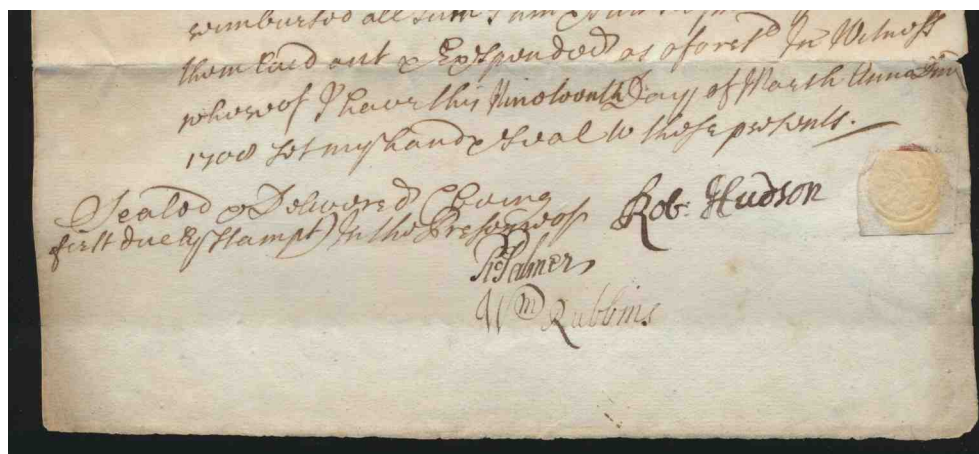 reimbursed all sum & sums
them laid out & Expended as aforesd In Witness
whereof I have this Nineteenth Day of March Anna Dm̃
1708 set my hand & seal to these presents.
Sealed & Delivered (being
first duely Stampt) In the Presence of
Rob: Hudson
Palmer
Wm Rubbins